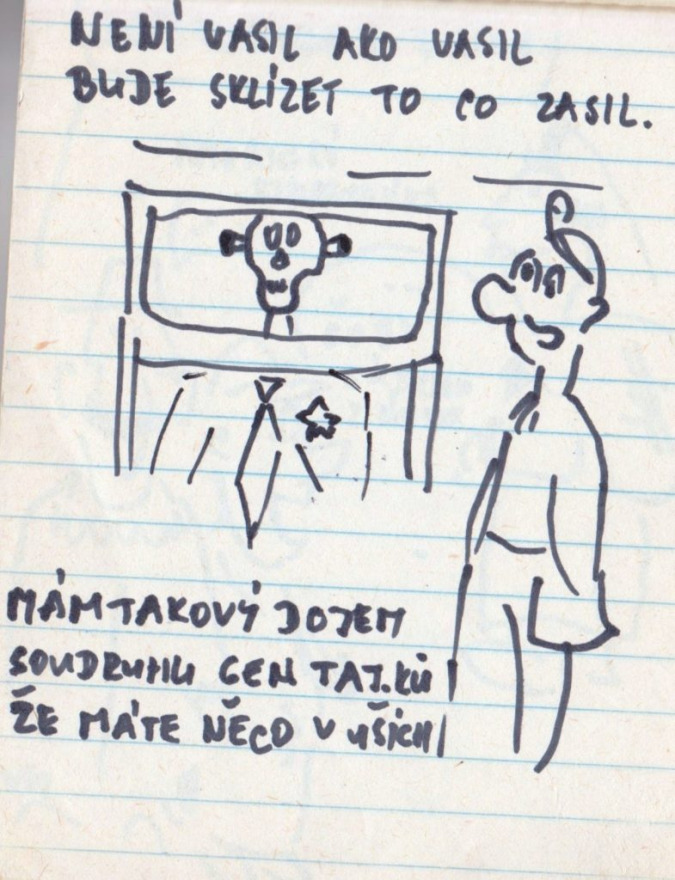 NENÍ VASIL AKO VASIL
BUDE SKLÍZET TO CO ZASIL.
MÁM TAKOVÝ DOJEM
SOUDRUHU GEN TAJ.KŮ
ŽE MÁTE NĚCO V UŠÍCH